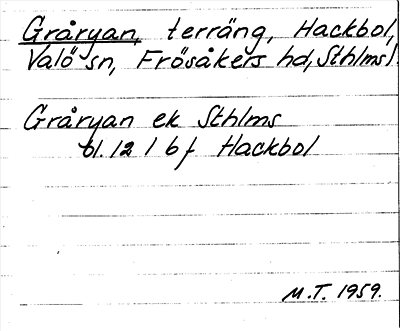 Gråryan, terräng, Hackbol,
Valö sn, Frösåkers hd, Sthlms l.
Gråryan ek Sthlms
bl. 12 1 b f Hackbol
M.T. 1959.